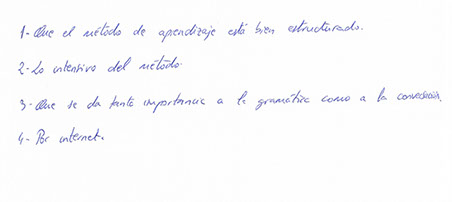 1- Que el método de aprendizaje está bien estructurado.
2- Lo intensivo del método.
3- Que se da tanta importancia a la gramática como a la conversación.
4- Por internet.